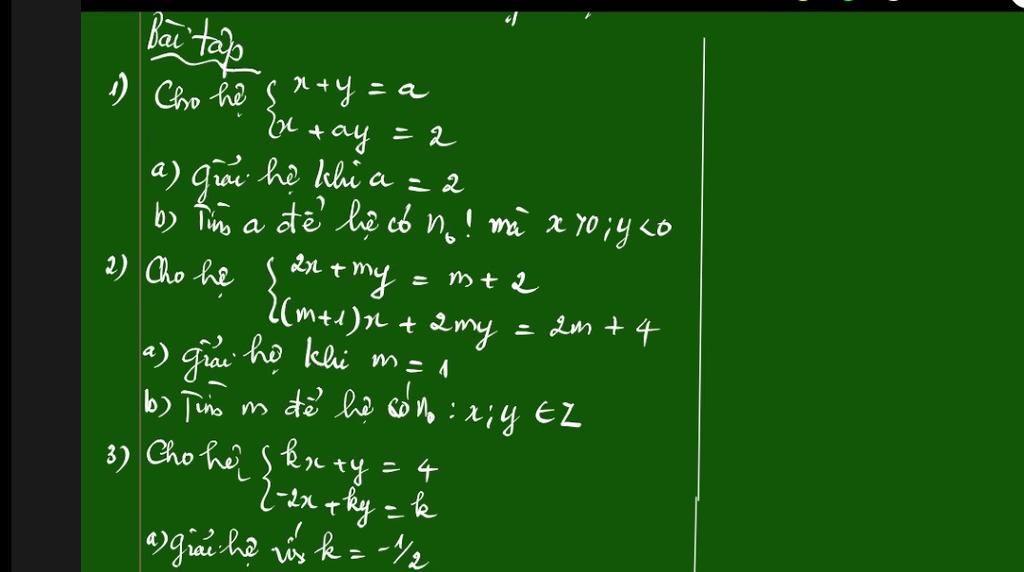 Bài tập
1) Cho hệ { x + y = a
x + ay = 2
a) giải hệ khi a = 2
b) Tìm a để hệ có n₀! mà x > 0 ; y < 0
2) Cho hệ { 2x + my = m + 2
(m+1)x + 2my = 2m + 4
a) giải hệ khi m = 1
b) Tìm m để hệ có n₀ : x ; y ∈ Z
3) Cho hệ { kx + y = 4
-2x + ky = k
a) giải hệ với k = -1/2